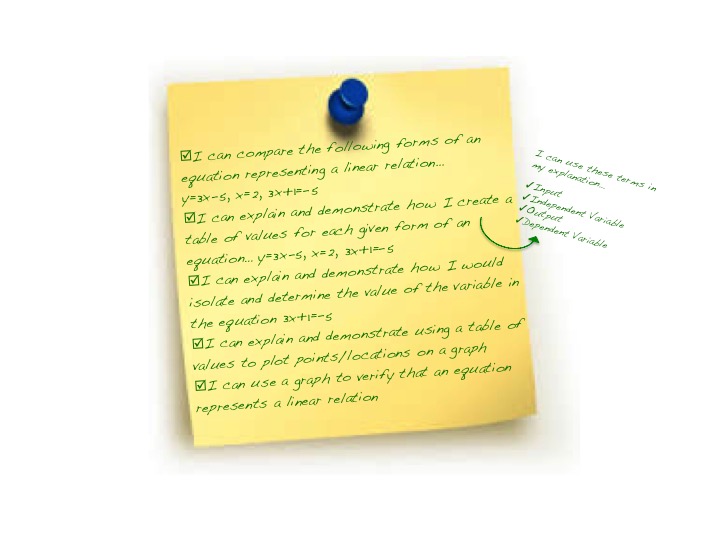 ☑I can compare the following forms of an
equation representing a linear relation...
y=3x-5, x=2, 3x+1=-5
☑I can explain and demonstrate how I create a
table of values for each given form of an
equation... y=3x-5, x=2, 3x+1=-5
☑I can explain and demonstrate how I would
isolate and determine the value of the variable in
the equation 3x+1=-5
☑I can explain and demonstrate using a table of
values to plot points/locations on a graph
☑I can use a graph to verify that an equation
represents a linear relation
I can use these terms in
my explanation...
✓Input
✓Independent Variable
✓Output
✓Dependent Variable